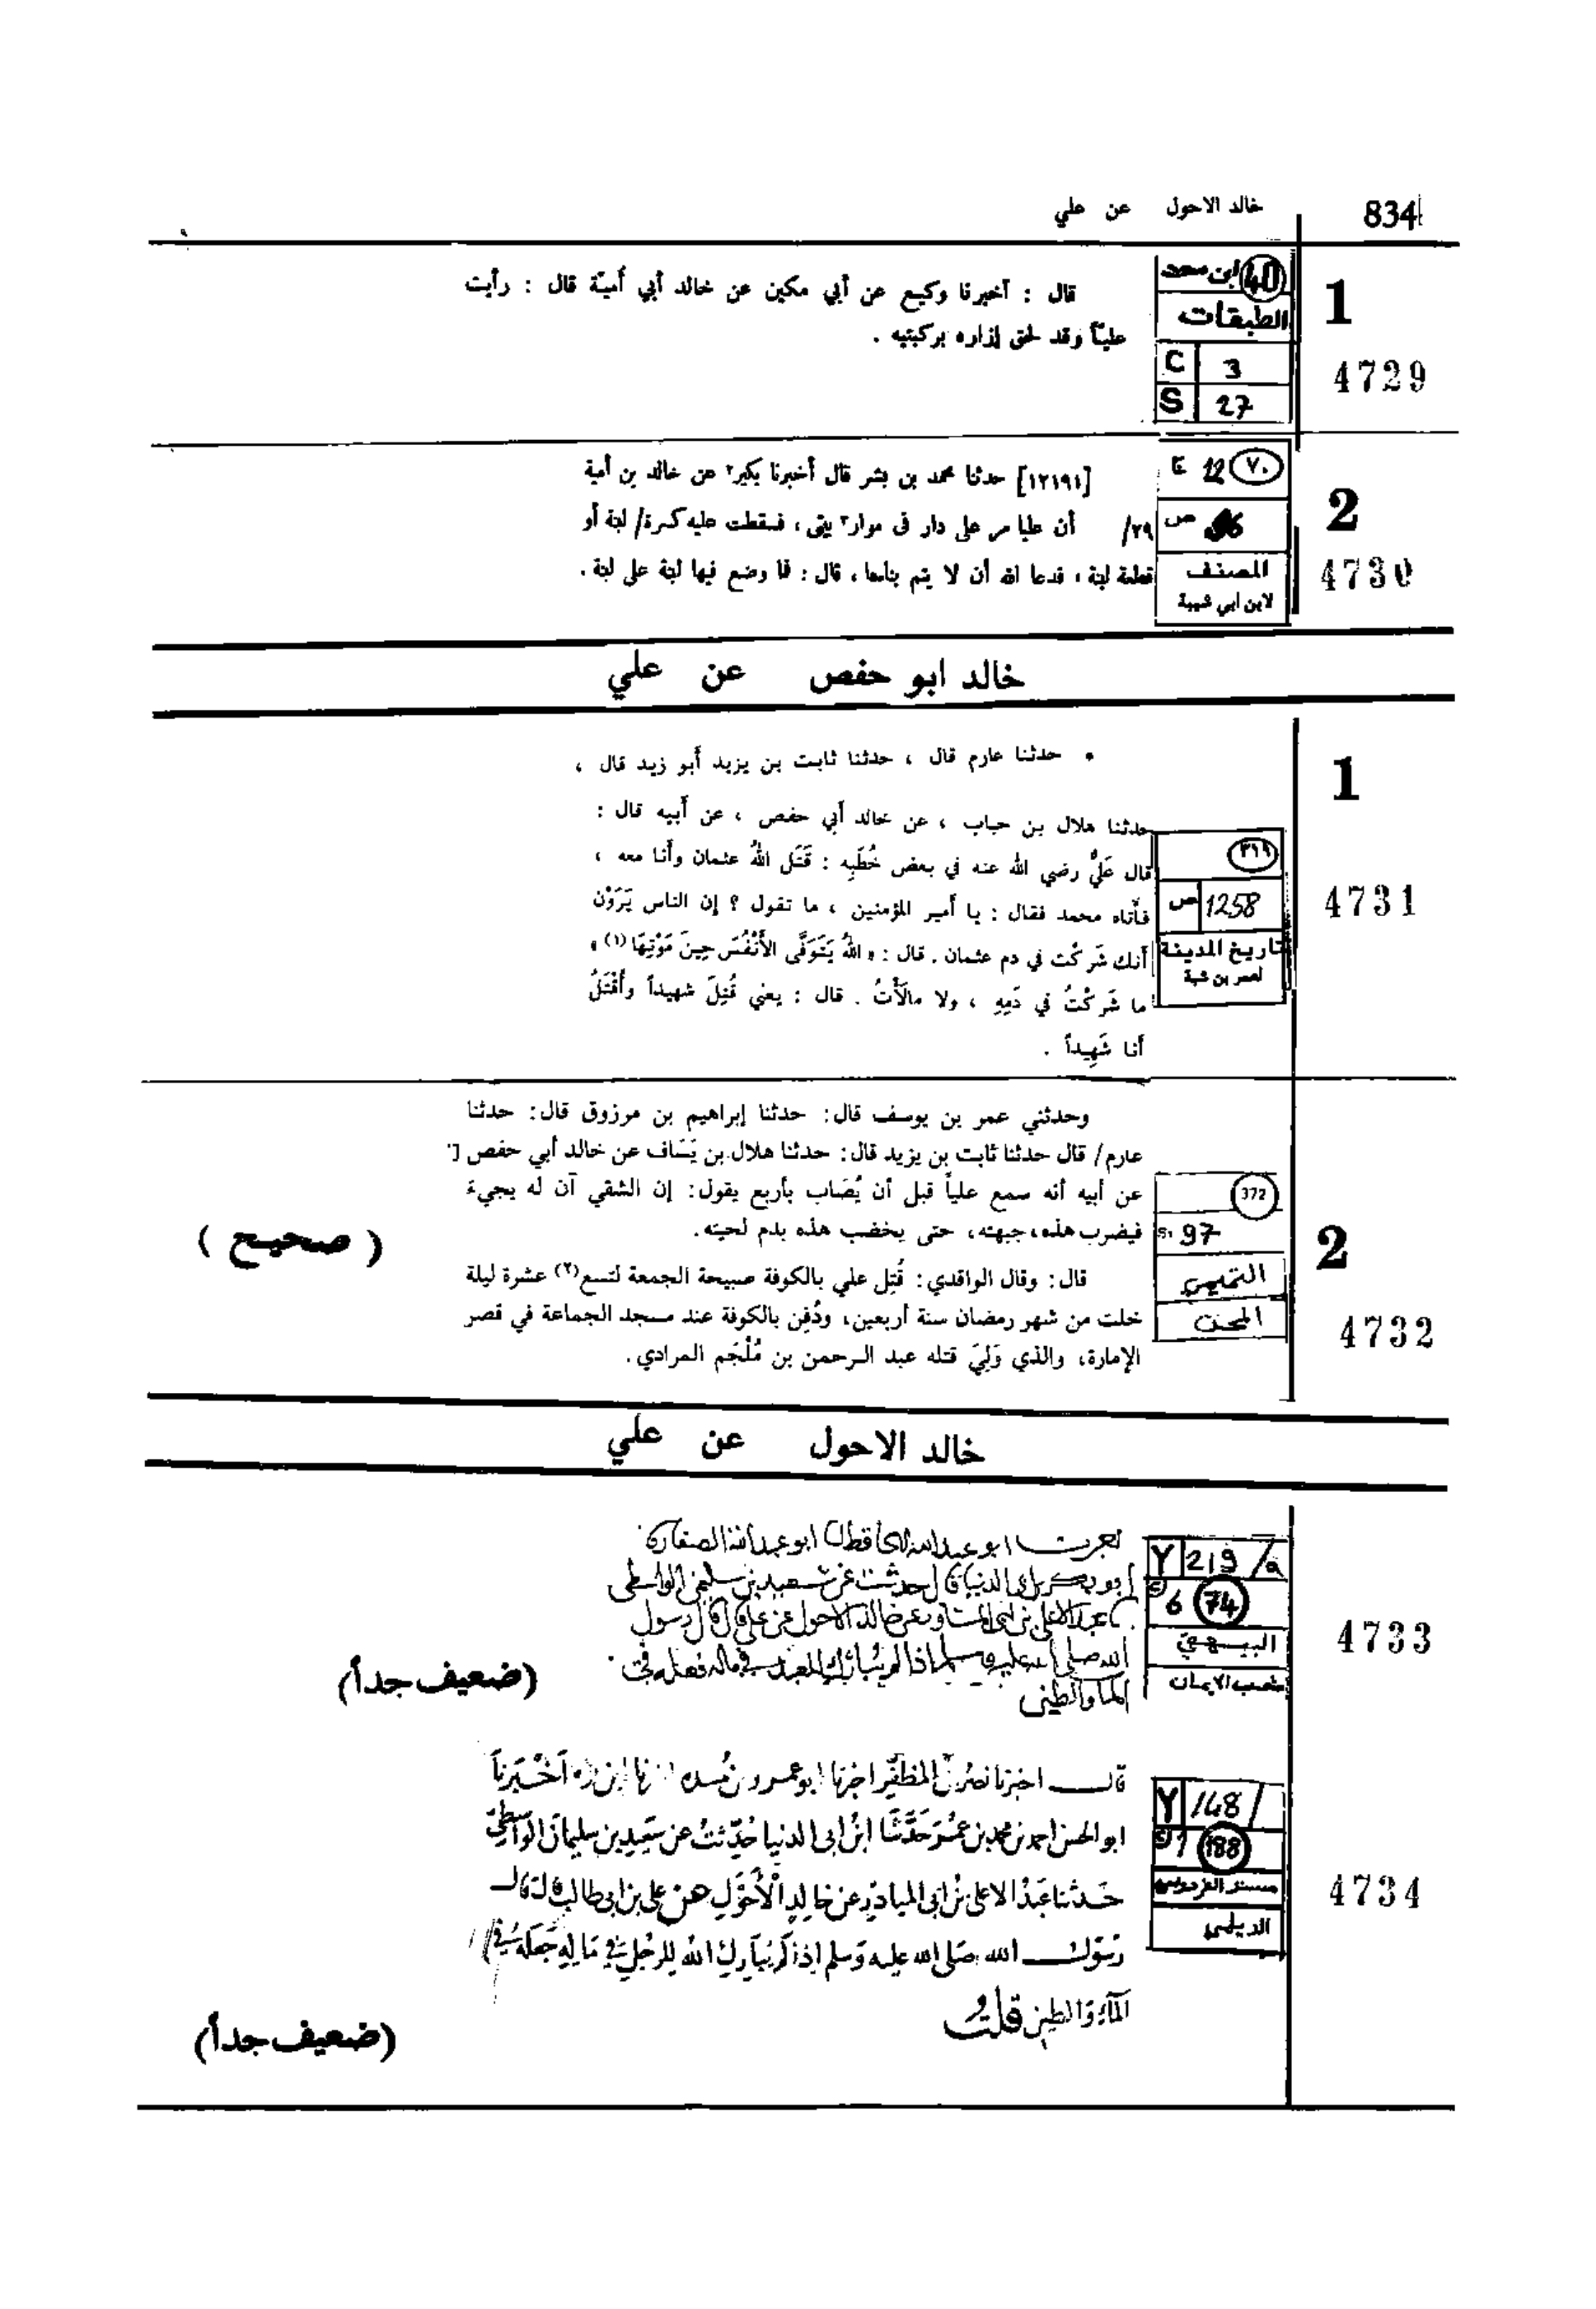 834
خالد الاحول عن علي
1
4729
40 ابن سعد
الطبقات
C 3
S 27
قال : أخبرنا وكيع عن أبي مكين عن خالد أبي أُميّة قال : رأيت
عليّاً وقد لحق إزاره بركبتيه .
2
4730
12 ٧٠
ص
المصنف
لابن ابي شيبة
[١٢١٩١] حدثنا محمد بن بشر قال أخبرنا بكير٢ عن خالد بن أمية
٢٩/ أن عليا مر على دار في موار٣ يبنى ، فسقطت عليه كسرة/ لبنة أو
قطعة لبنة ، فدعا الله أن لا يتم بناءها ، قال : فما وضع فيها لبنة على لبنة .
خالد ابو حفص عن علي
1
4731
٣١٩
ص 1258
تاريخ المدينة
لعمر بن شبة
• حدثنا عارم قال ، حدثنا ثابت بن يزيد أبو زيد قال ،
حدثنا هلال بن حباب ، عن خالد أبي حفص ، عن أبيه قال :
قال عَليٌّ رضي الله عنه في بعض خُطَبِه : قَتَل اللهُ عثمان وأنا معه ،
فأتاه محمد فقال : يا أمير المؤمنين ، ما تقول ؟ إن الناس يَرَوْن
أنك شَرِكْت في دم عثمان . قال : « اللهُ يَتَوَفَّى الأَنْفُسَ حِينَ مَوْتِهَا (١) »
ما شَرِكْتُ في دَمِهِ ، ولا مالَأْتُ . قال : يعني قُتِلَ شهيداً وأُقْتَلُ
أنا شَهِيداً .
2
4732
372
97
التميمي
المحن
وحدثني عمر بن يوسف قال: حدثنا إبراهيم بن مرزوق قال: حدثنا
عارم/ قال حدثنا ثابت بن يزيد قال: حدثنا هلال بن يَسَاف عن خالد أبي حفص
عن أبيه أنه سمع علياً قبل أن يُصَاب بأربع يقول: إن الشقي آن له يجيء
فيضرب هذه، جبهته، حتى يخضب هذه بدم لحيته.
قال: وقال الواقدي: قُتِل علي بالكوفة صبيحة الجمعة لتسع(٢) عشرة ليلة
خلت من شهر رمضان سنة أربعين، ودُفِن بالكوفة عند مسجد الجماعة في قصر
الإمارة، والذي وَلِيَ قتله عبد الرحمن بن مُلْجَم المرادي.
( صحيح )
خالد الاحول عن علي
4733
Y 219/a
6 74
البيهقي
شعب الايمان
ابو عبد الله الحافظ ابو عبد الله الصفار
ابو بكر بن ابي الدنيا قال حدثت عن سعيد بن سليمن الواسطي
عبد الاعلى بن ابي المساور عن خالد الاحول عن علي قال قال رسول
الله صلى الله عليه وسلم اذا لم يبارك للعبد في ماله جعله في
الما والطين
(ضعيف جداً)
4734
Y 148/
188
مسند الفردوس
الديلمي
قال اخبرنا نصر بن المظفر اخبرنا ابو عمرو بن اخبرنا
ابو الحسن احمد بن محمد بن عُمَر حَدَّثنا ابن ابي الدنيا حُدِّثتُ عن سَعيد بن سليمان الواسطيّ
حَدثنا عَبْدُ الاعلى بن ابي المساور عن خالدٍ الأَحْوَلِ عن علي بن ابي طالب قال قال
رسول الله صَلى الله عليه وَسَلم إذا لم يُبَارك الله للرجُل في مَالِهِ جَعَلَهُ في
المآء والطين قلت
(ضعيف جداً)